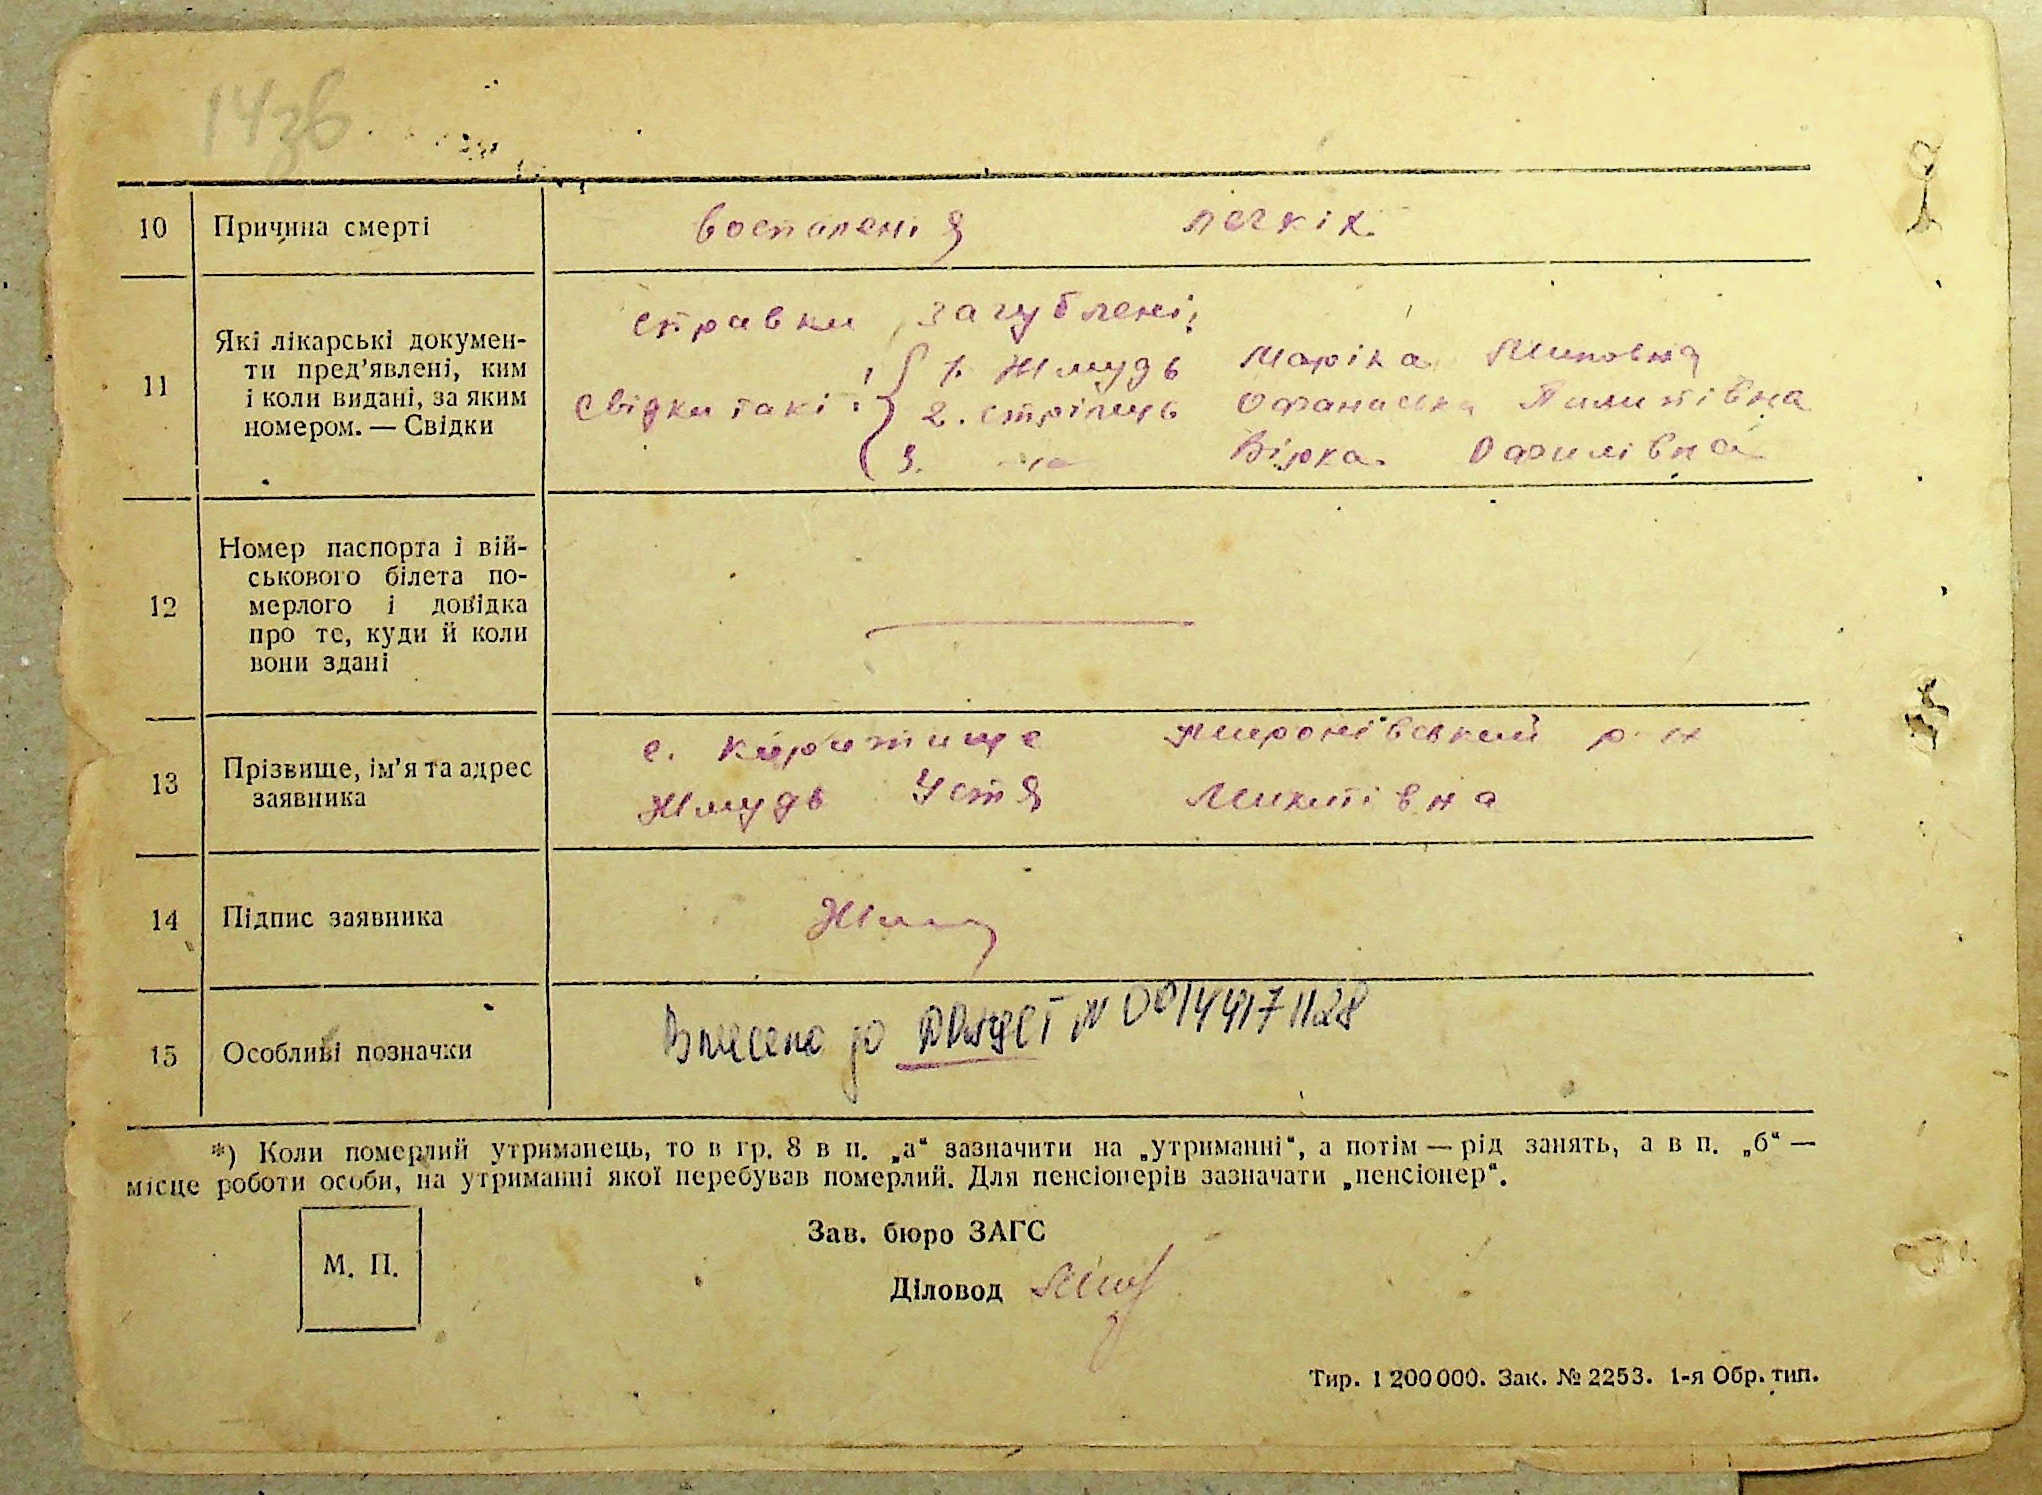 14зв
10 Причина смерті воспаленія легкіх.
11 Які лікарські докумен-
ти пред'явлені, ким
і коли видані, за яким
номером. — Свідки
справки загублені;
свідки такі: 1. Жмудь Маріка
2. Стрілець Пилипівна
3. Вірка
12 Номер паспорта і вій-
ськового білета по-
мерлого і довідка
про те, куди й коли
вони здані
13 Прізвище, ім'я та адрес
заявника
с. Коритище Миронівський р-н
Жмудь Устя Микитівна
14 Підпис заявника Жму
15 Особливі позначки Внесено до ДРАЦСГ № 00144171128
*) Коли померлий утриманець, то в гр. 8 в п. „а“ зазначити на „утриманні“, а потім — рід занять, а в п. „б“ —
місце роботи особи, на утриманні якої перебував померлий. Для пенсіонерів зазначати „пенсіонер“.
М. П.
Зав. бюро ЗАГС
Діловод
Тир. 1 200 000. Зак. № 2253. 1-я Обр. тип.